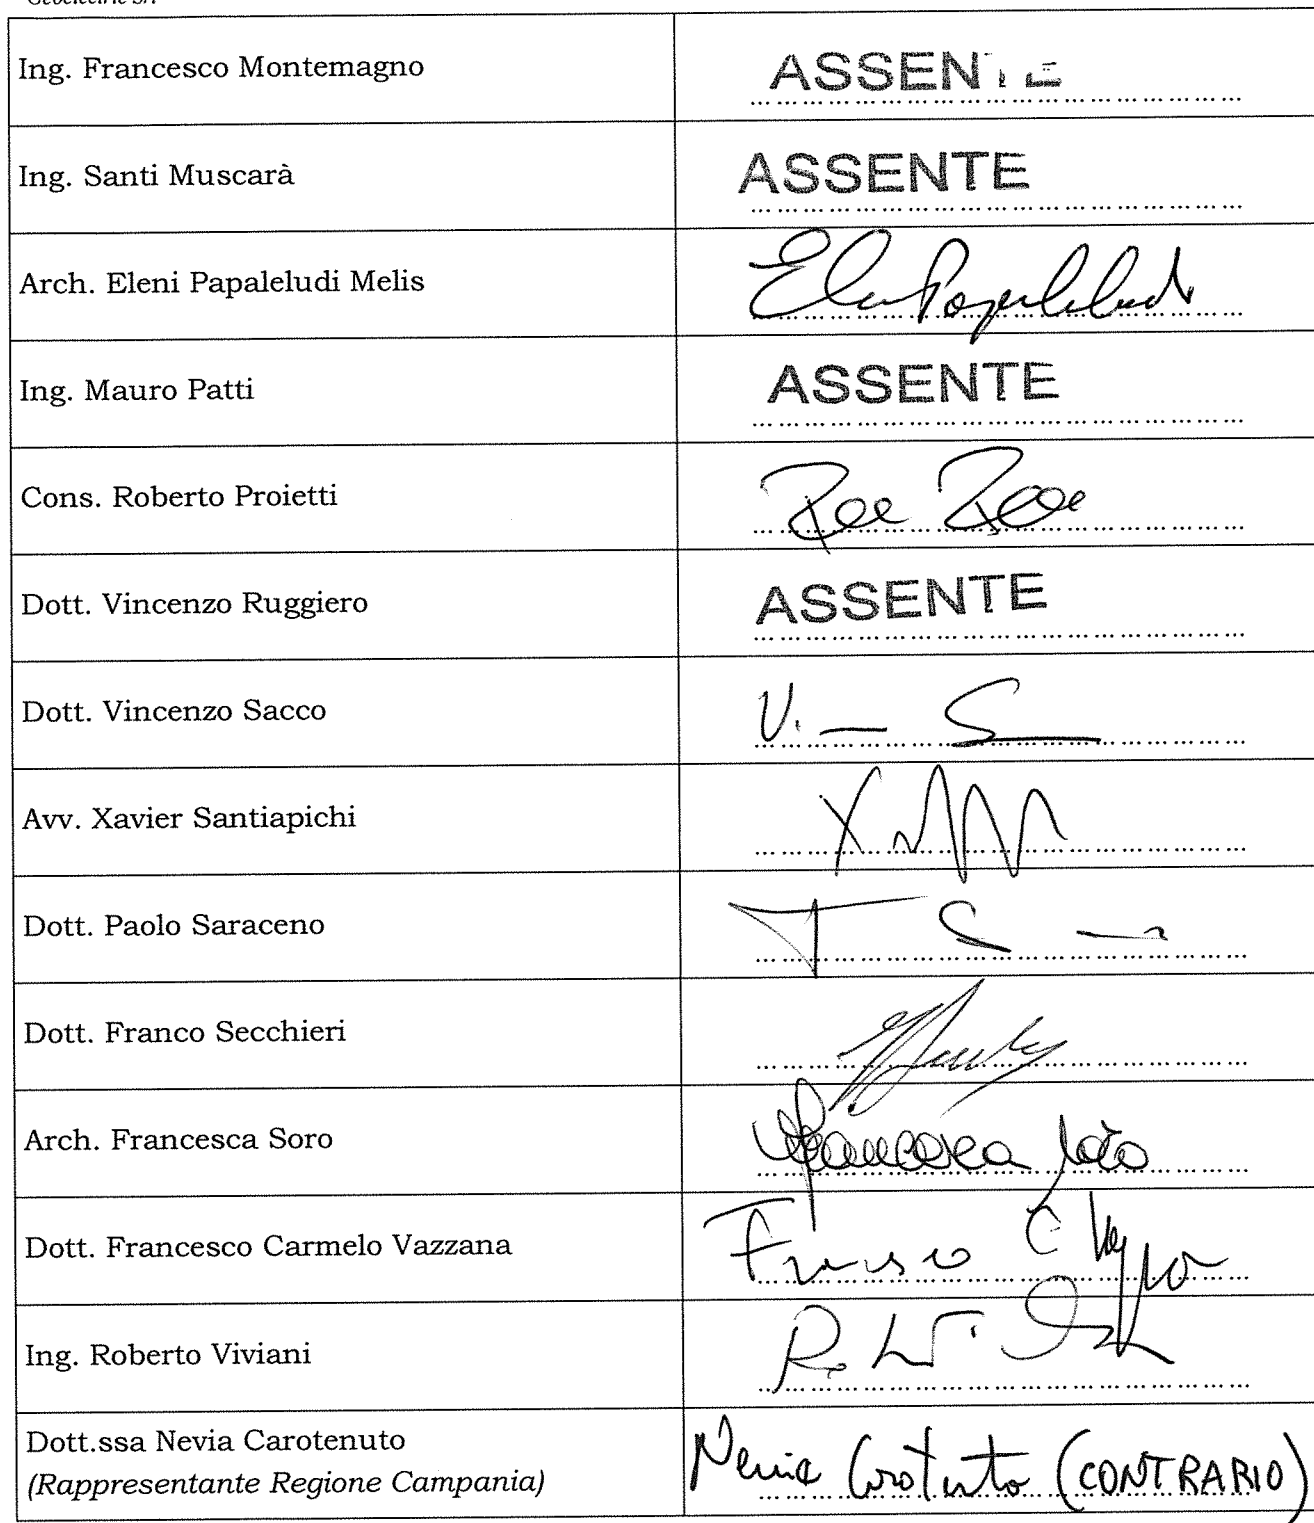 Geoelectric Srl
Ing. Francesco Montemagno
ASSENTE
Ing. Santi Muscarà
ASSENTE
Arch. Eleni Papaleludi Melis
Ing. Mauro Patti
ASSENTE
Cons. Roberto Proietti
Dott. Vincenzo Ruggiero
ASSENTE
Dott. Vincenzo Sacco
Avv. Xavier Santiapichi
Dott. Paolo Saraceno
Dott. Franco Secchieri
Arch. Francesca Soro
Francesca Soro
Dott. Francesco Carmelo Vazzana
Ing. Roberto Viviani
Dott.ssa Nevia Carotenuto
(Rappresentante Regione Campania)
Nevia Carotenuto (CONTRARIO)